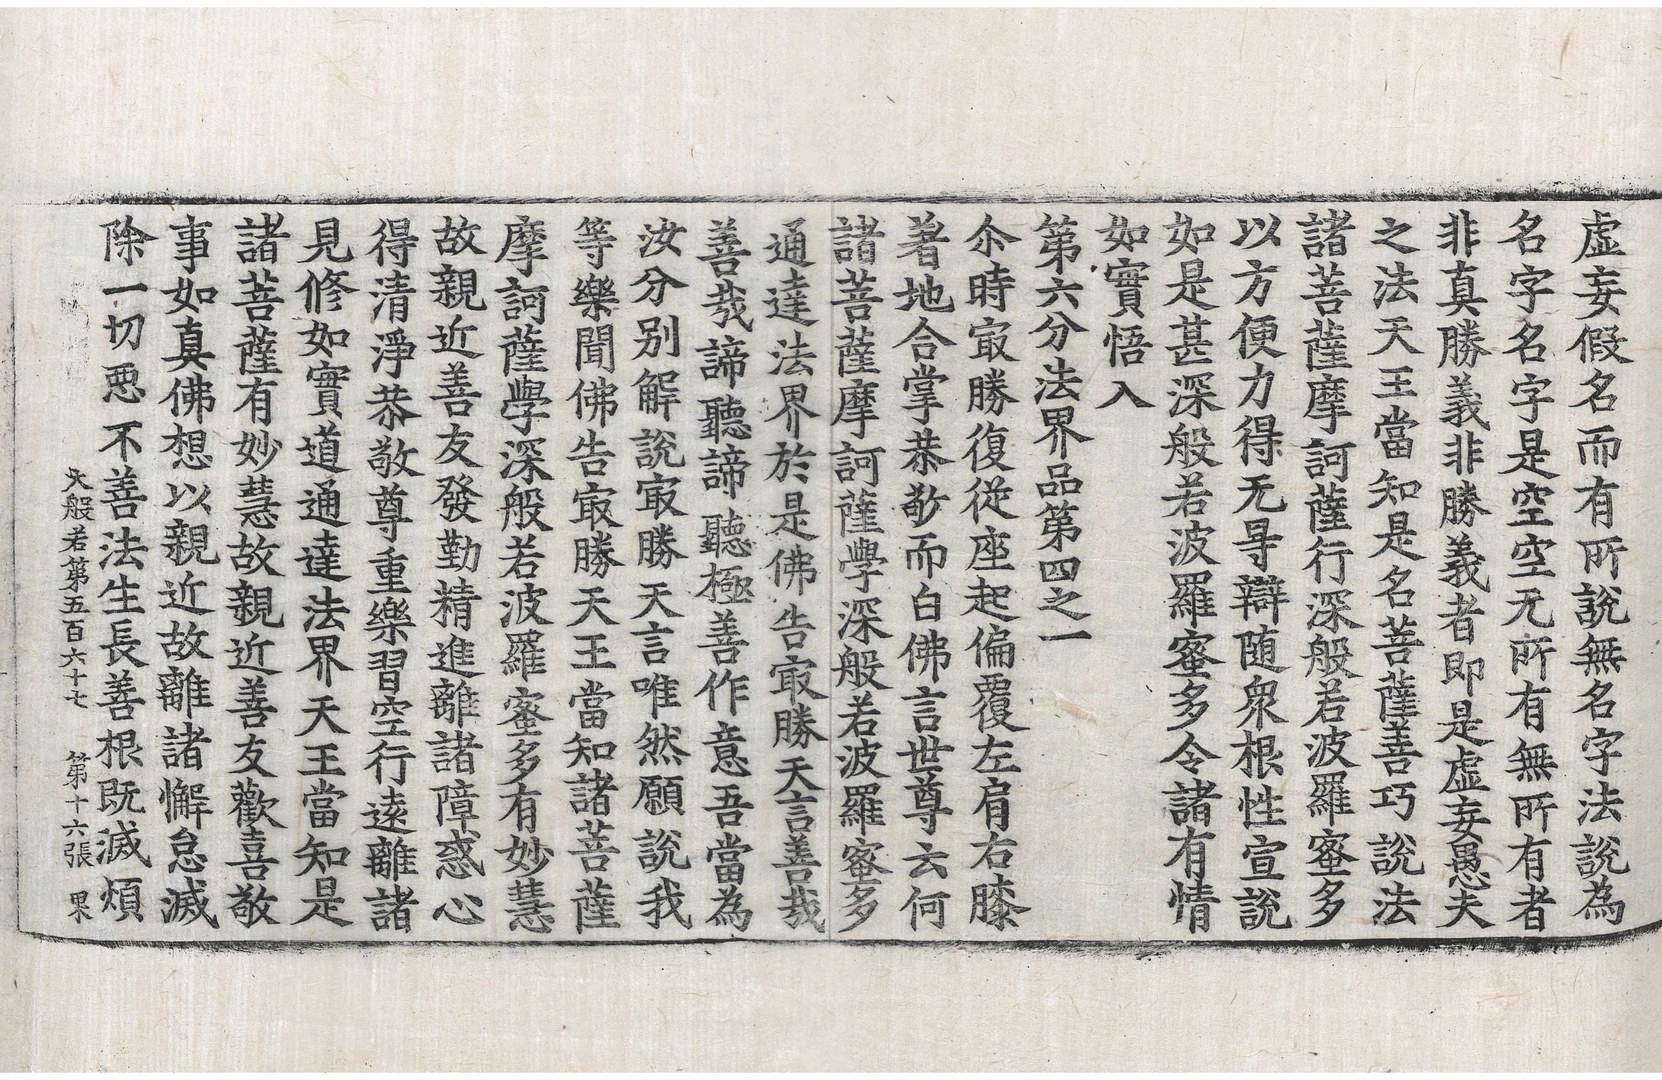 虛妄假名而有所說無名字法說為
名字名字是空空无所有無所有者
非真勝義非非勝義者即是虛妄愚夫
之法天王當知是名菩薩善巧說法
諸菩薩摩訶薩行深般若波羅蜜多
以方便力得无㝵辯随衆根性宣說
如是甚深般若波羅蜜多令諸有情
如實悟入
第六分法界品第四之一
尒時㝡勝復従座起偏覆左肩右膝
著地合掌恭敬而白佛言世尊云何
諸菩薩摩訶薩學深般若波羅蜜多
通達法界於是佛告㝡勝天言善哉
善哉諦聽諦聽極善作意吾當為
汝分别解說㝡勝天言唯然願說我
等樂聞佛告㝡勝天王當知諸菩薩
摩訶薩學深般若波羅蜜多有妙慧
故親近善友發勤精進離諸障惑心
得清淨恭敬尊重樂習空行遠離諸
見修如實道通達法界天王當知是
諸菩薩有妙慧故親近善友歡喜敬
事如真佛想以親近故離諸懈怠滅
除一切惡不善法生長善根既滅煩
大般若第五百六十七 第十六張 果